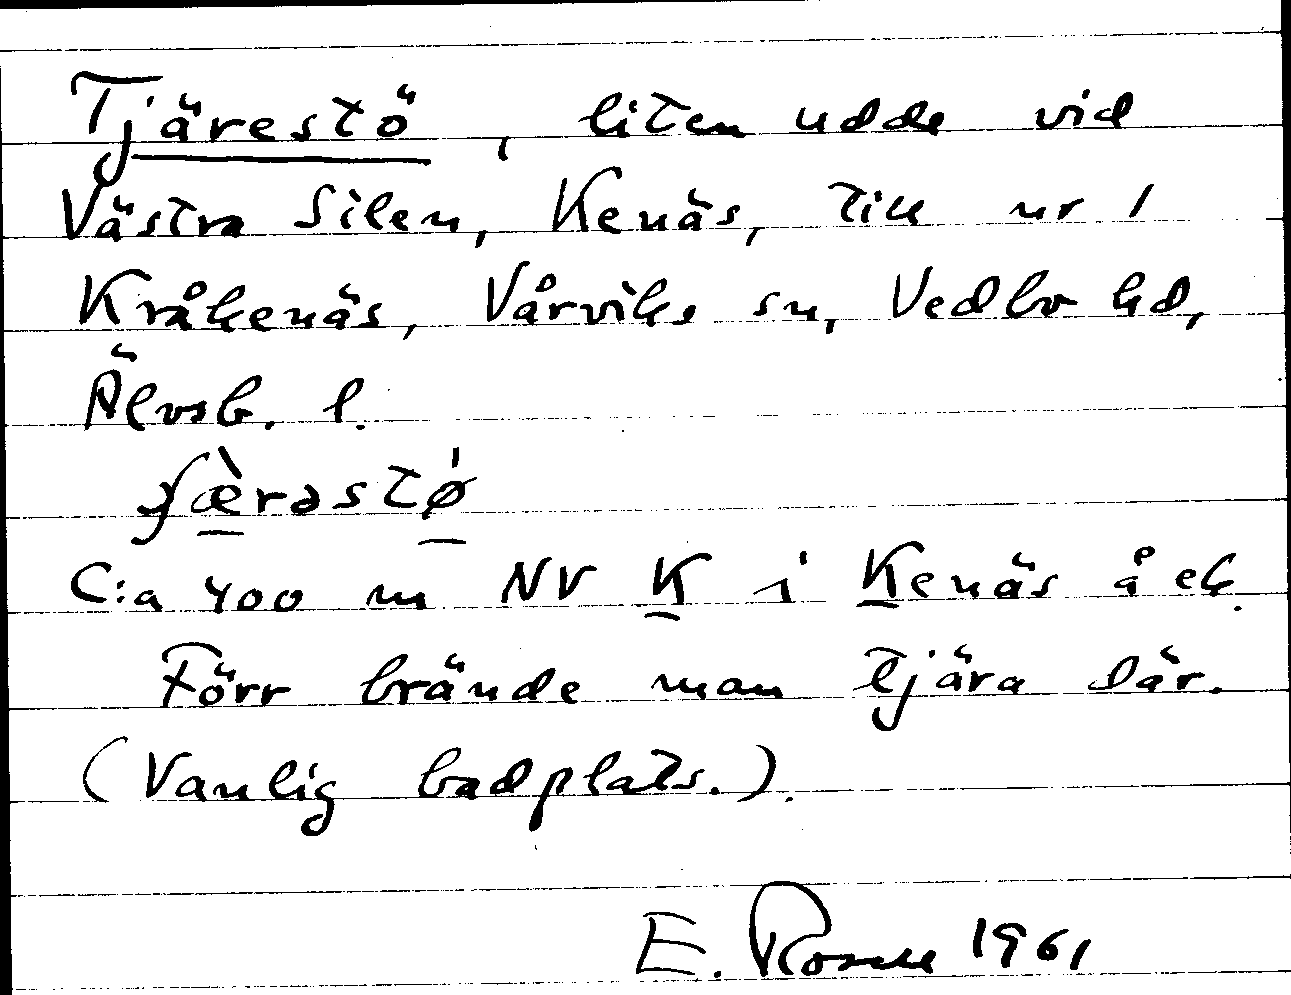 Tjärestö, liten udde vid
Västra Silen, Kenäs, till nr 1
Kråkenäs, Vårviks sn, Vedbo hd,
Älvsb. l.
C:a 400 m NV K i Kenäs å ek.
Förr brände man tjära där.
(Vanlig badplats.).
E. 1961